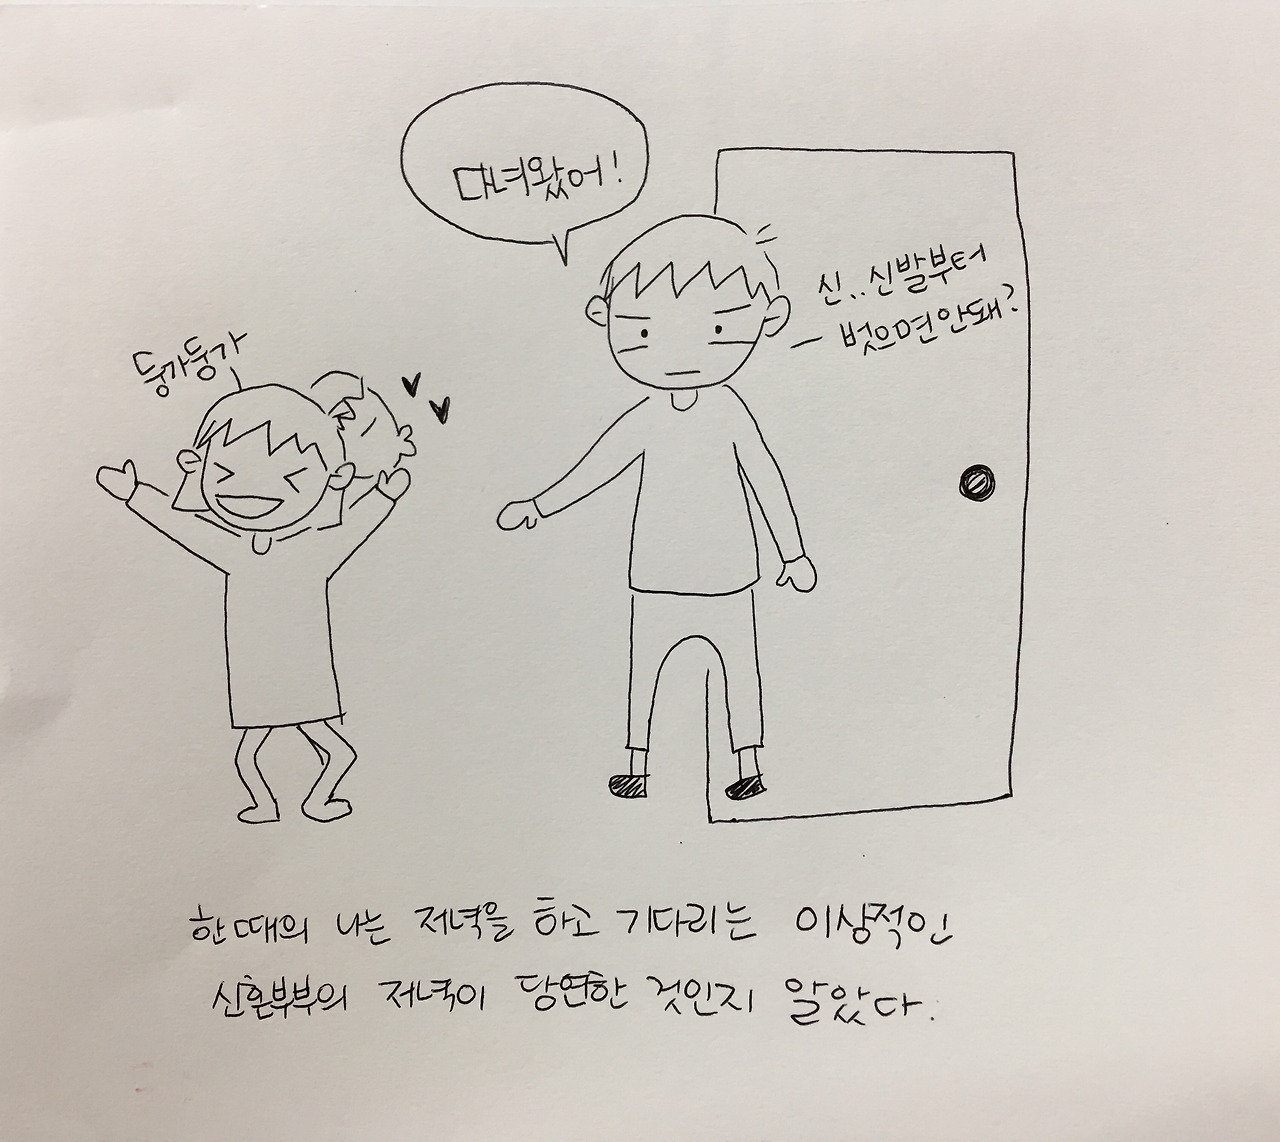 다녀왔어!
신..신발부터
벗으면안돼?
둥가둥가
한때의 나는 저녁을 하고 기다리는 이상적인
신혼부부의 저녁이 당연한 것인지 알았다.